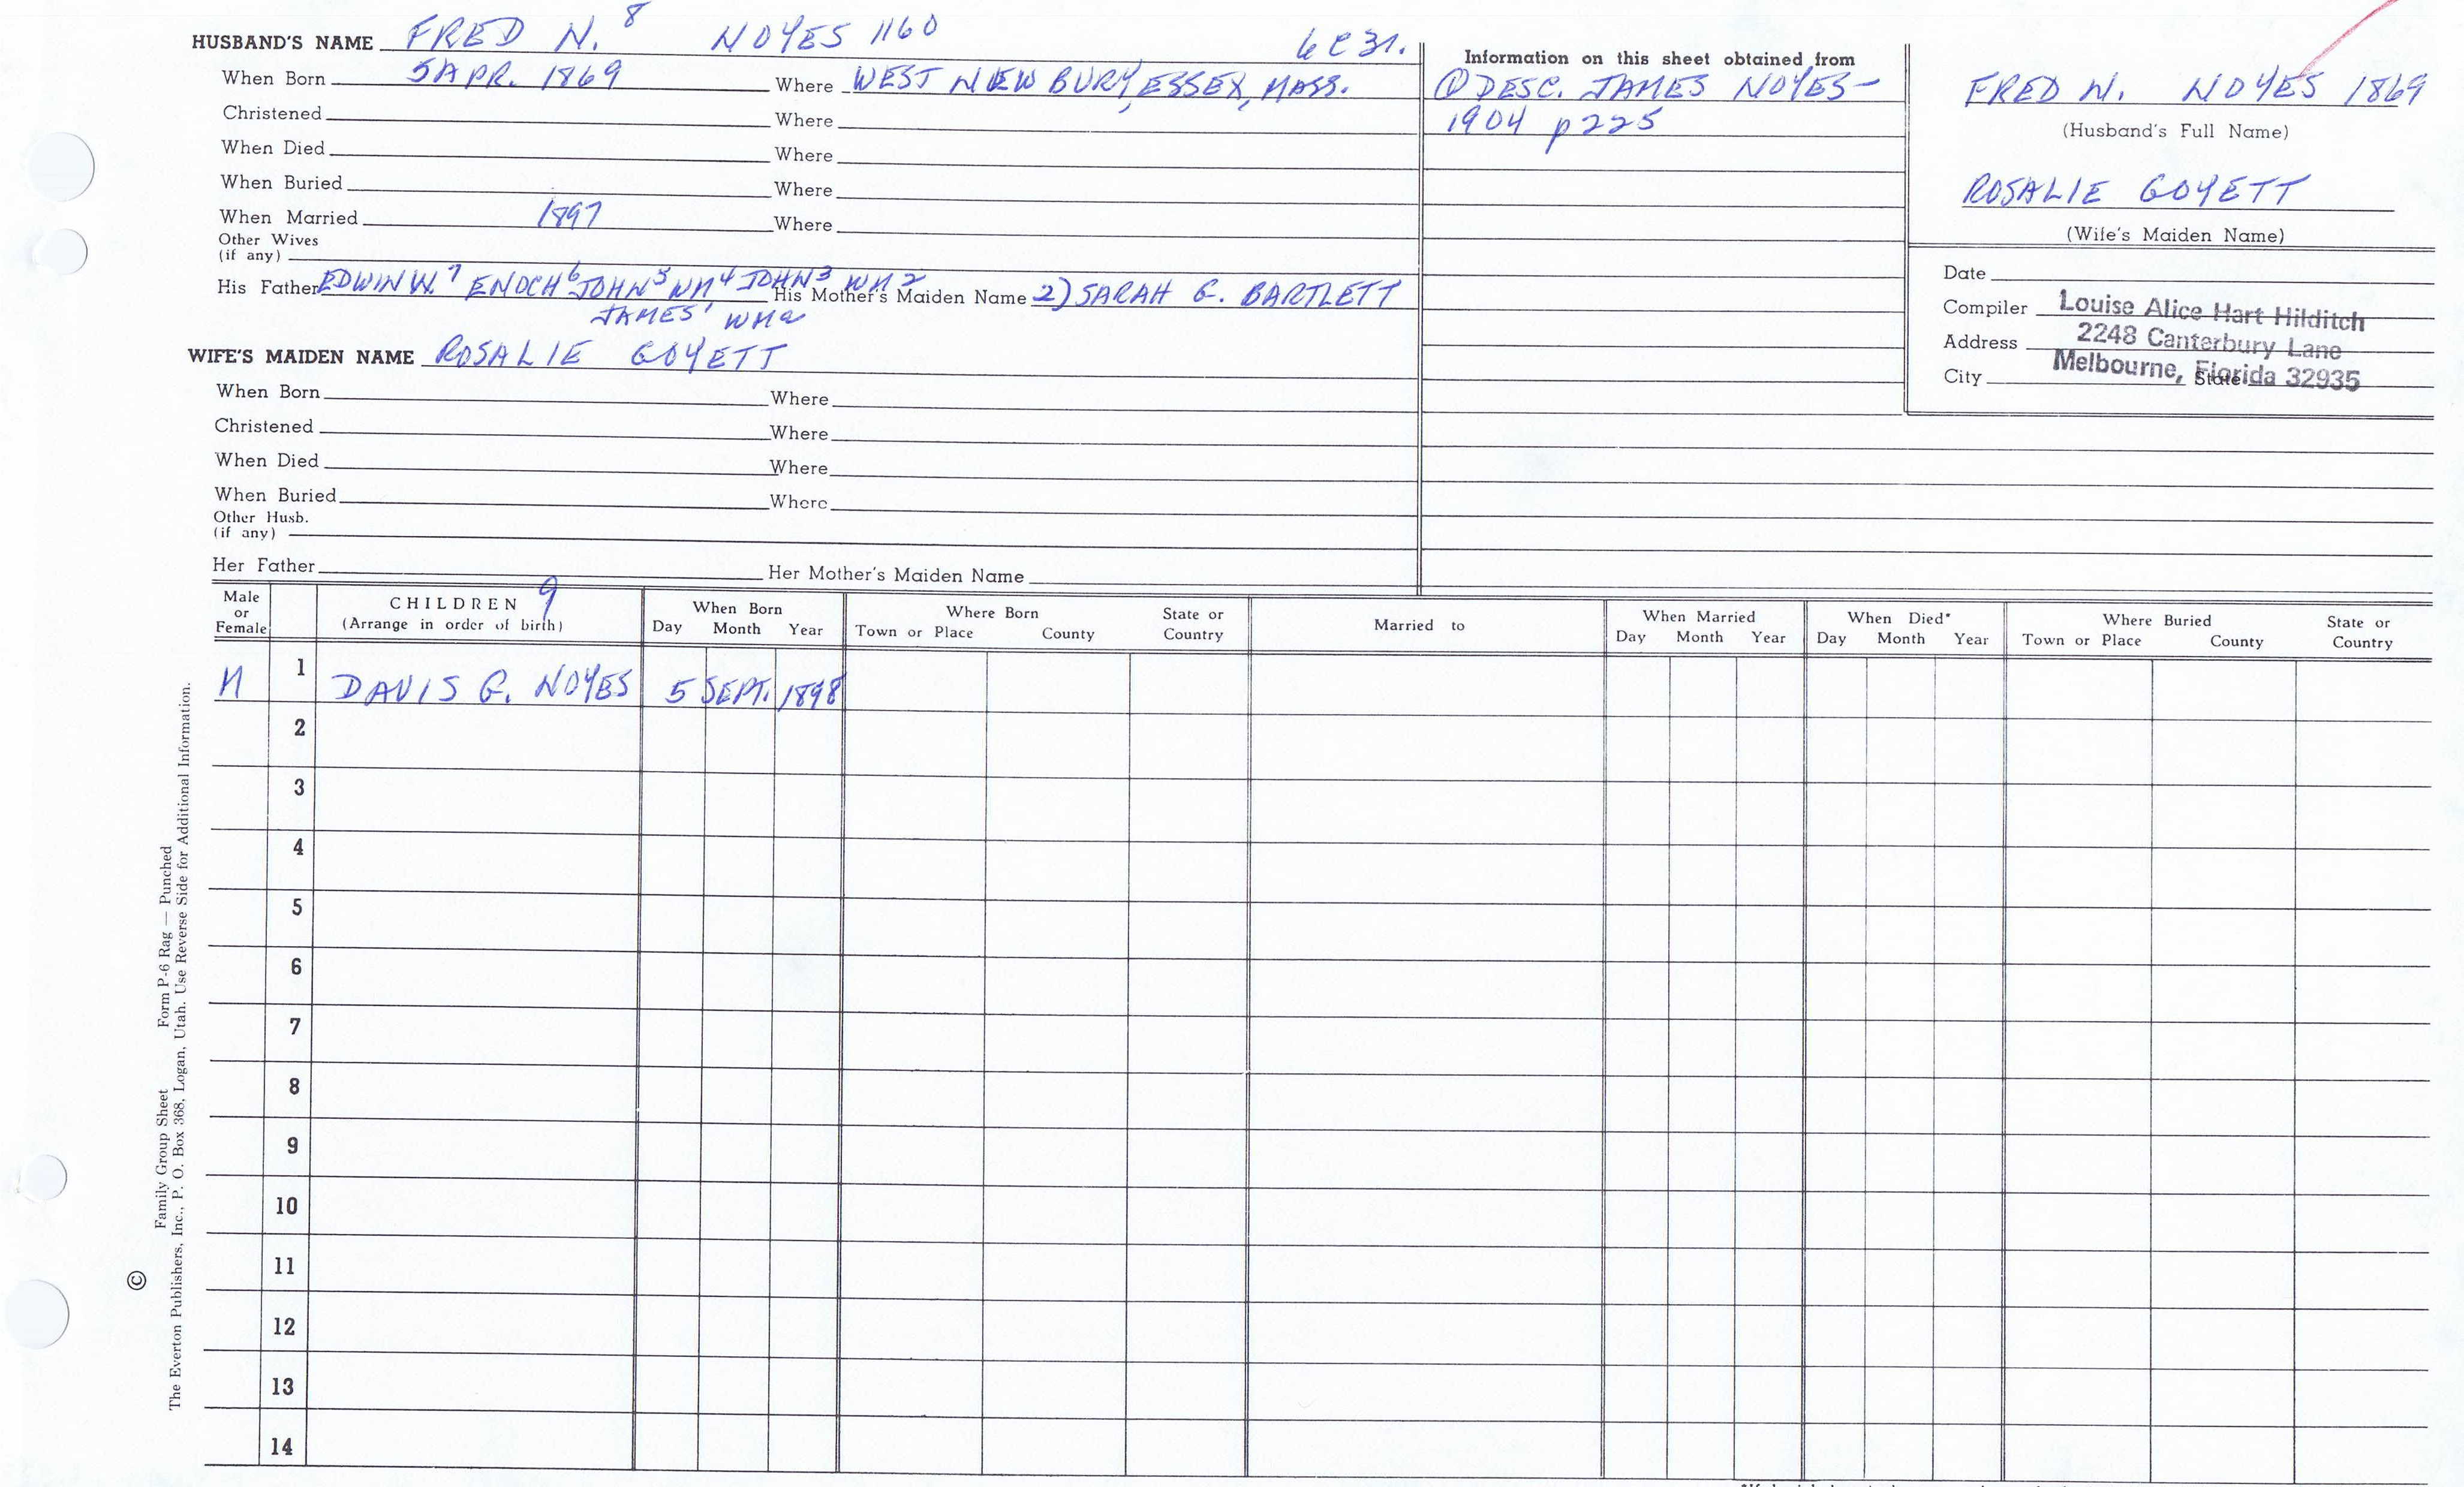 HUSBAND'S NAME FRED N. 8 NOYES 1160
When Born 5 APR. 1869 Where WEST NEWBURY, ESSEX, MASS.
Christened Where
When Died Where
When Buried Where
When Married 1897 Where
Other Wives
(if any)
His Father EDWIN W.7 ENOCH6 JOHN5 WM4 JOHN3 WM2 His Mother's Maiden Name 2) SARAH G. BARTLETT
JAMES1 WMa
WIFE'S MAIDEN NAME ROSALIE GOYETT
When Born Where
Christened Where
When Died Where
When Buried Where
Other Husb.
(if any)
Her Father Her Mother's Maiden Name
Information on this sheet obtained from
① DESC. JAMES NOYES-
1904 p225
FRED N. NOYES 1869
(Husband's Full Name)
ROSALIE GOYETT
(Wife's Maiden Name)
Date
Compiler Louise Alice Hart Hilditch
Address 2248 Canterbury Lane
City Melbourne, Florida 32935 State
Male or Female CHILDREN 9 (Arrange in order of birth) When Born Day Month Year Where Born Town or Place County State or Country Married to When Married Day Month Year When Died* Day Month Year Where Buried Town or Place County State or Country
M 1 DAVIS G. NOYES 5 SEPT. 1898
2
3
4
5
6
7
8
9
10
11
12
13
14
© Family Group Sheet Form P-6 Rag — Punched
The Everton Publishers, Inc., P. O. Box 368, Logan, Utah. Use Reverse Side for Additional Information.